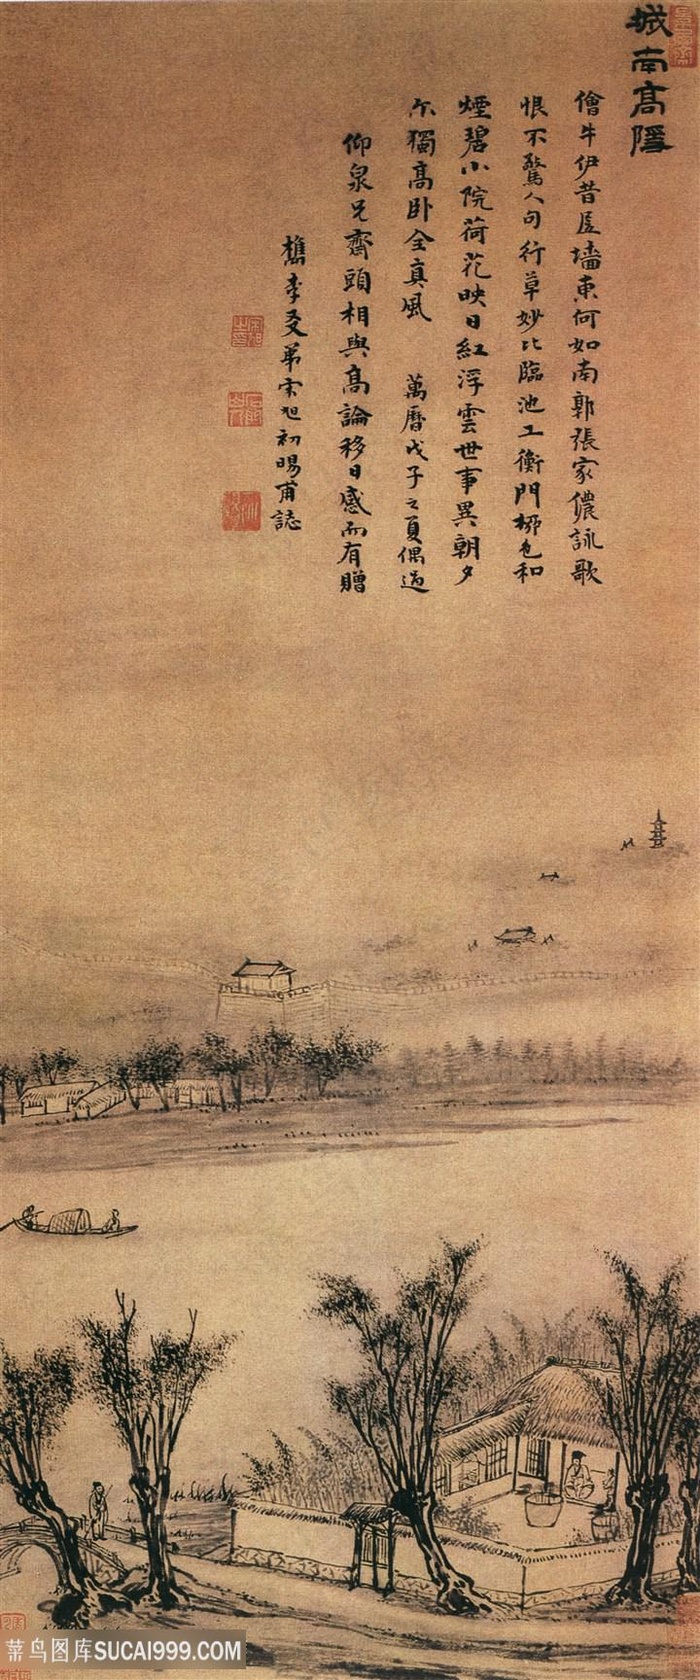 城南髙隱
儈牛伊昔居墻東何如南郭張家儂詠歌
恨不驚人句行草妙比臨池工衡門栁色和
煙碧小院荷花映日紅浮雲世事異朝夕
尓獨髙卧全真風 萬曆戊子之夏偶過
仰泉兄齋頭相與髙論移日感而有贈
檇李友弟宋旭初暘甫誌
菜鸟图库SUCAI999.COM